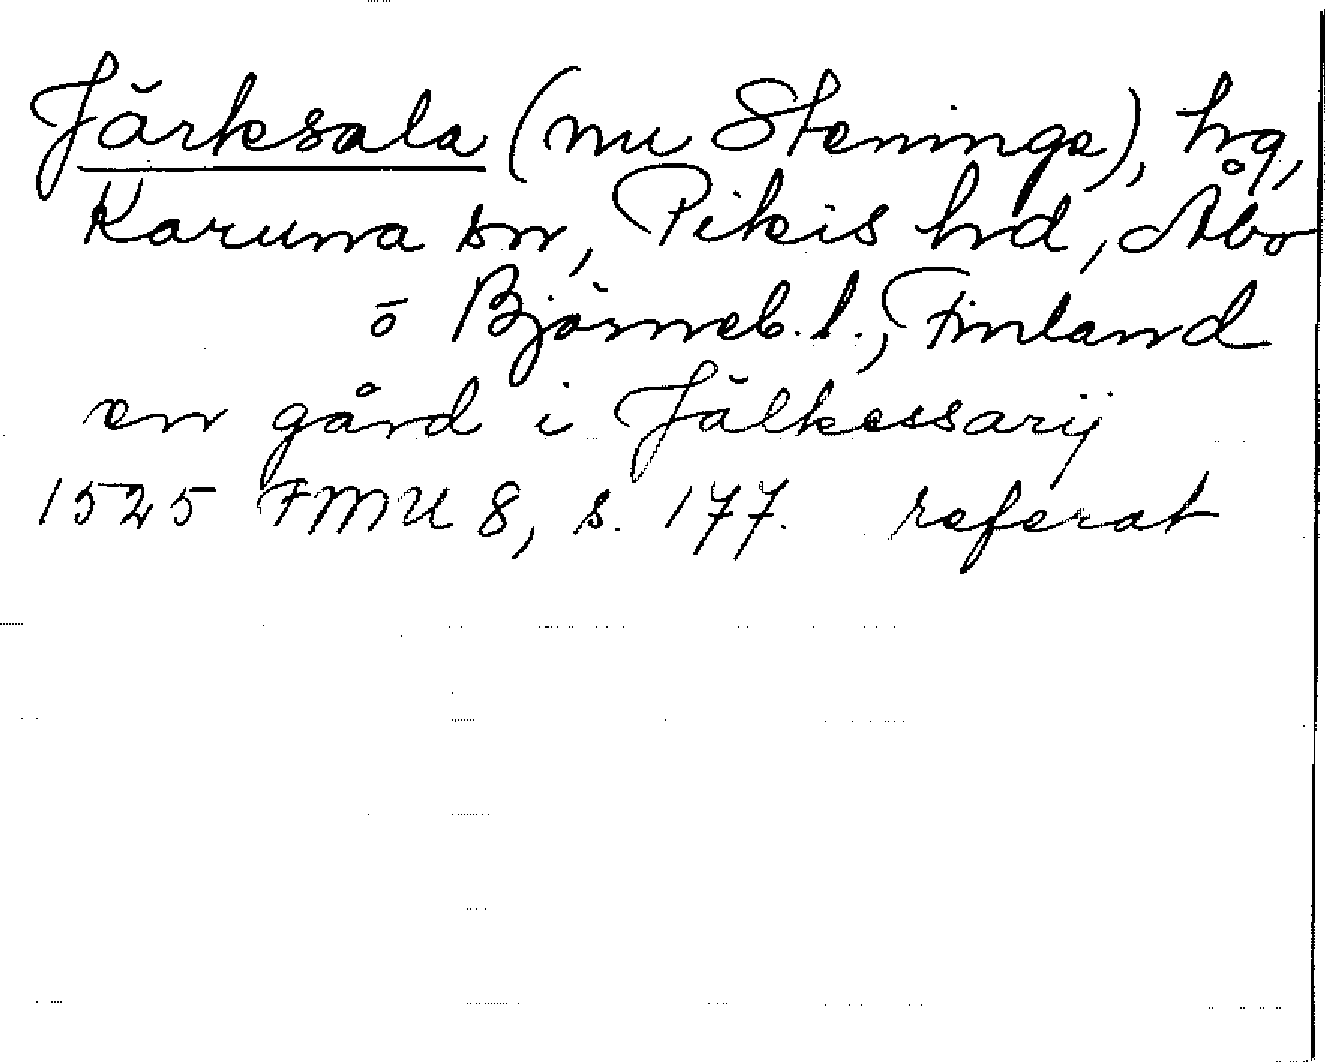 Järksala (nu Steninge), hg,
Karuna sn, Pikis hd, Åbo
o Björneb. l., Finland
en gård i Jälkessarij
1525 FMU 8, s. 177. referat